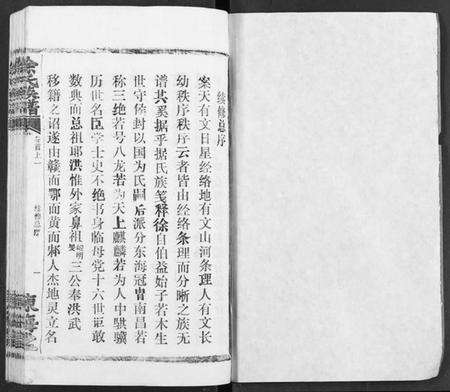 續修总序
案天有文日星经络地有文山河条理人有文长
幼秩序秩序云者皆由经络条理而分晰之族无
谱其奚据乎据氏族笺释徐自伯益始子若木生
世守侯封以国为氏嗣后派分东海冠胄南昌若
称三绝若号八龙若为天上麒麟若为人中骐骥
历世名臣学士史不绝书身临母党十六世讵敢
数典而忘祖耶洪惟外家鼻祖 三公奉洪武
移籍之诏遂由赣而鄂而黄而邾人杰地灵立名
徐氏宗谱
卷首上
续修总序
一
東海堂